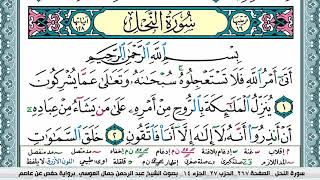 سُورَةُ النَّحْلِ
بِسْمِ اللَّهِ الرَّحْمَٰنِ الرَّحِيمِ
أَتَىٰ أَمْرُ اللَّهِ فَلَا تَسْتَعْجِلُوهُ سُبْحَانَهُ وَتَعَالَىٰ عَمَّا يُشْرِكُونَ
١ يُنَزِّلُ الْمَلَائِكَةَ بِالرُّوحِ مِنْ أَمْرِهِ عَلَىٰ مَن يَشَاءُ مِنْ عِبَادِهِ
أَنْ أَنذِرُوا أَنَّهُ لَا إِلَٰهَ إِلَّا أَنَا فَاتَّقُونِ ٢ خَلَقَ السَّمَاوَاتِ
سورة النحل الصفحة ٢٦٧ الحزب ٢٧ الجزء ١٤ بصوت الشيخ عبد الرحمن جمال العوسي . برواية حفص عن عاصم